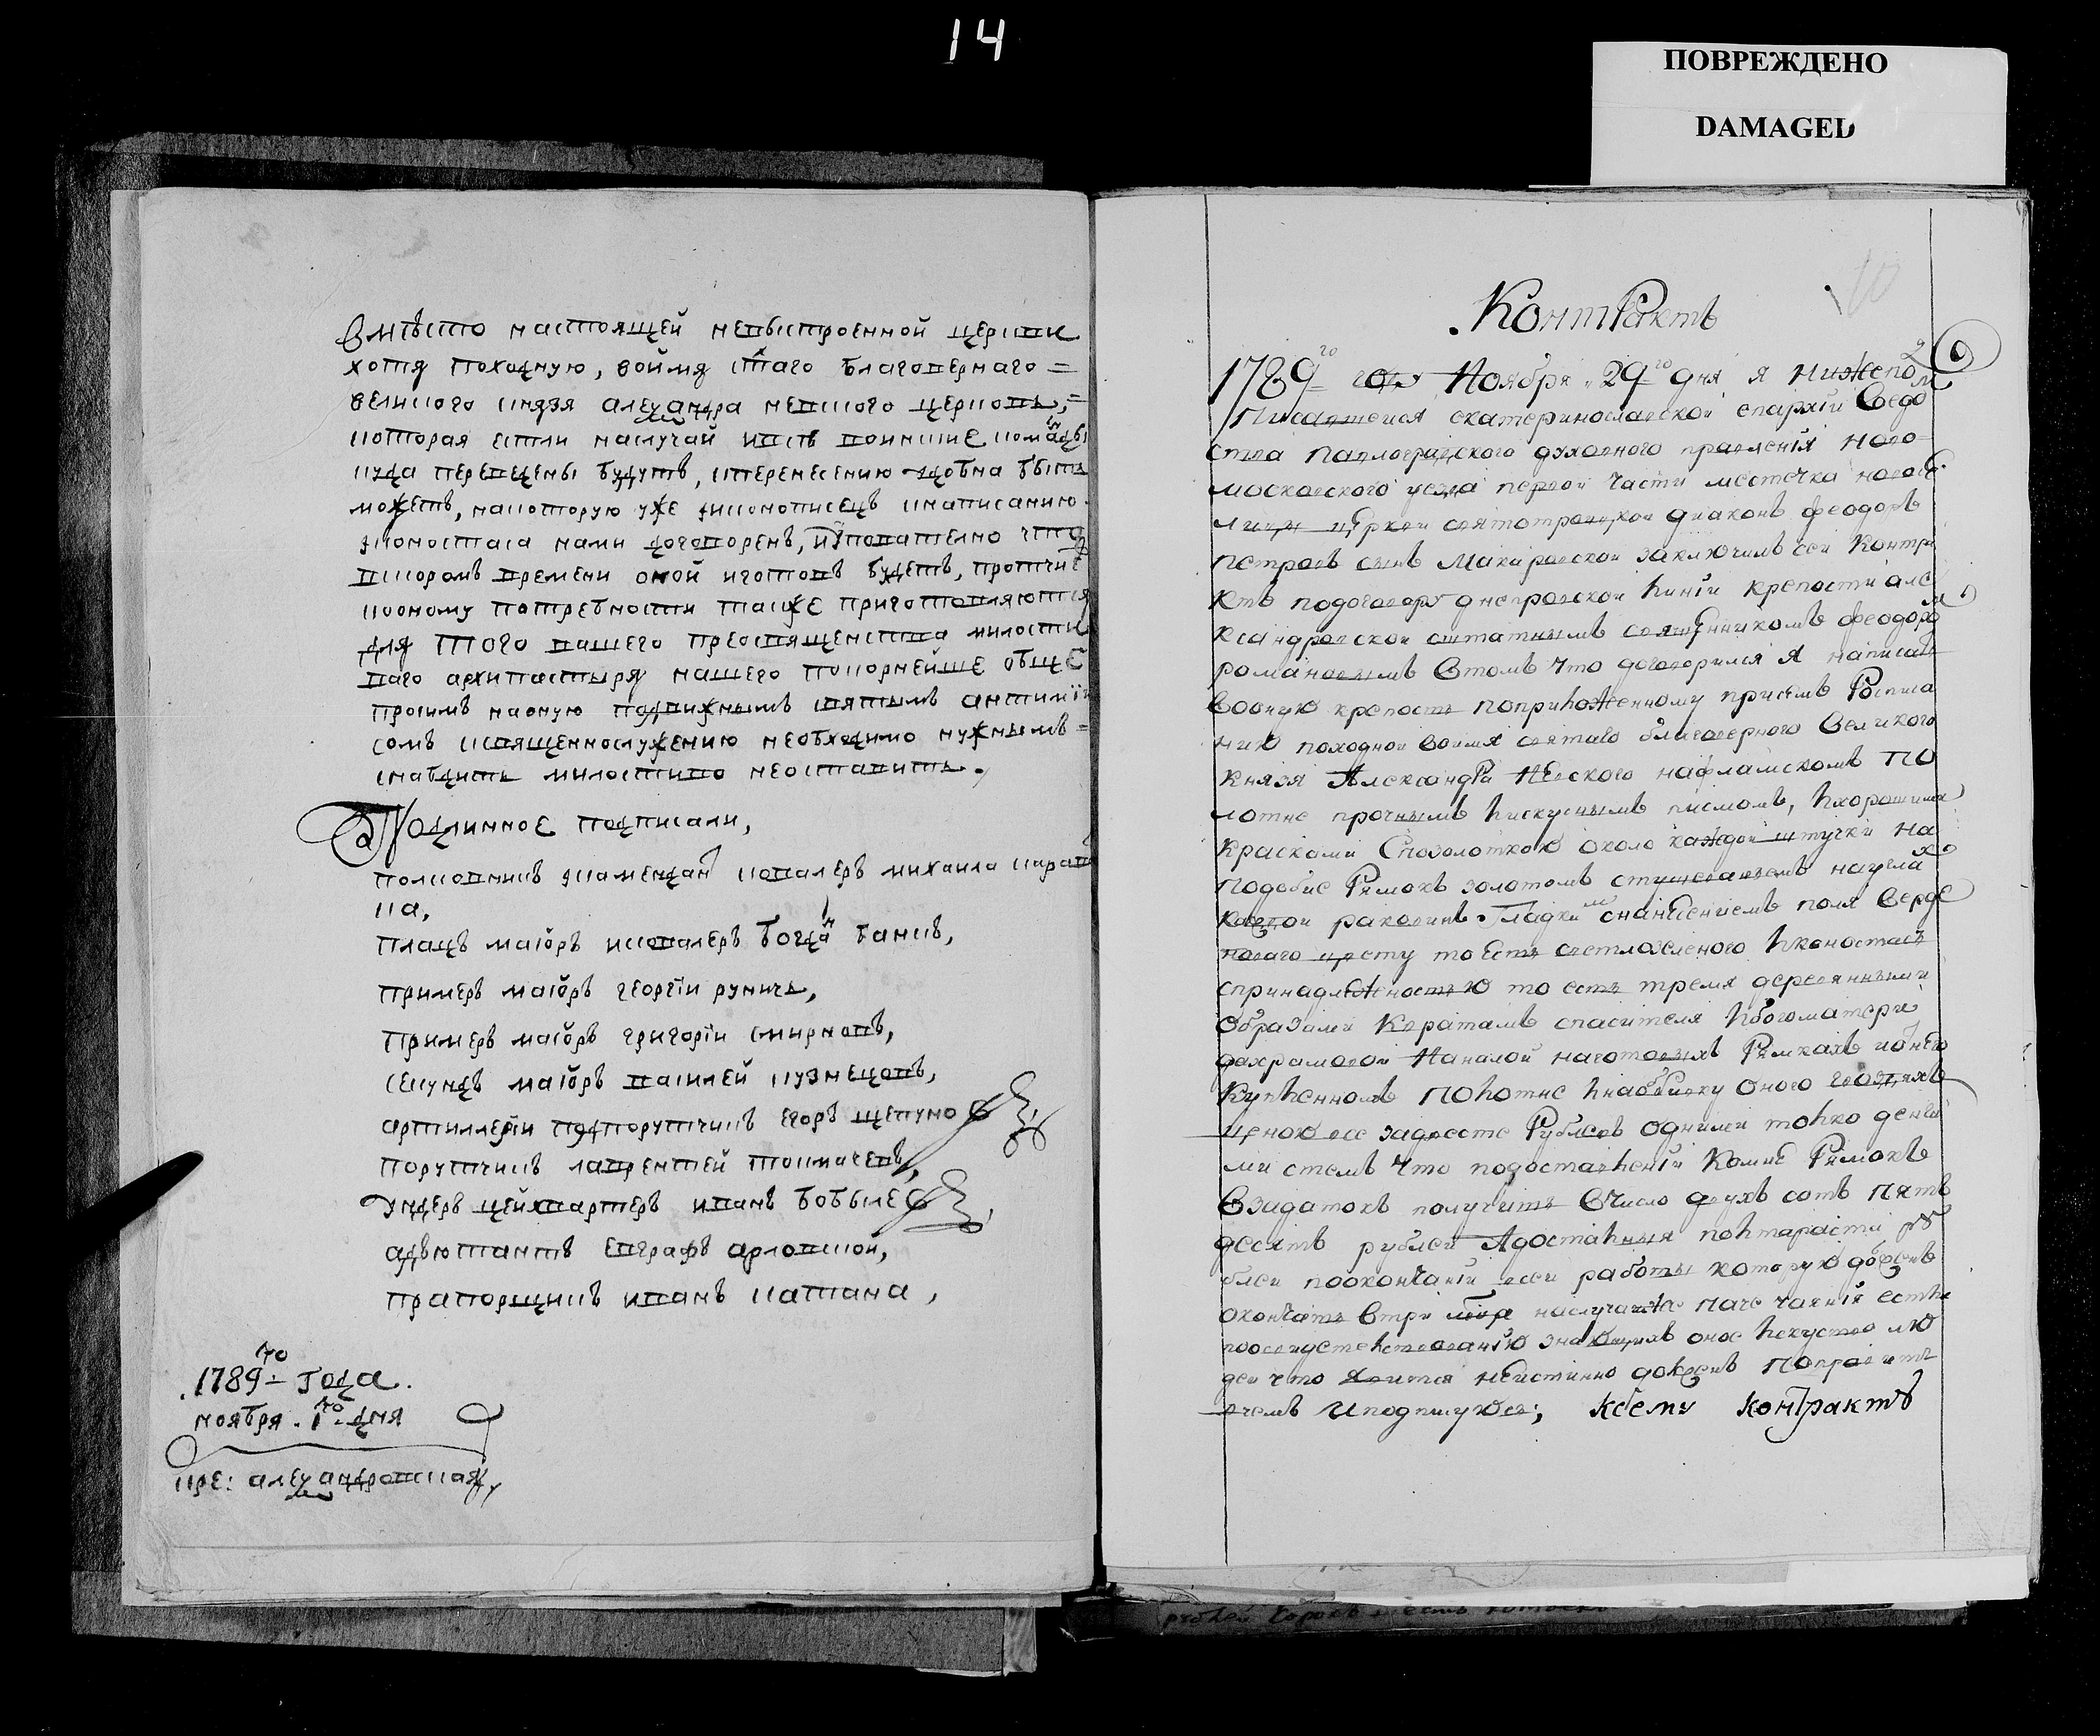 14
ПОВРЕЖДЕНО
DAMAGED
Вмѣсто настоящей невыстроенной церкви
хотя походную, воимя стаго благовернаго =
великого князя александра невского церковь, =
которая естли наслучай
куда переведены будутъ, кперенесению удобна быть
можетъ, накоторую уже икконописецъ кнаписанию
иконостаса нами договоренъ, и упователно что
вскоромъ времени оной иготовъ будетъ, протчие
коному потребности также приготовляются
для того вашего преосвященства милости
ваго архипастыря нашего покорнейше обще
просимъ наоную подвижнымъ святымъ антими
сомъ ксвященнослужению необходимо нужнымъ =
снабдить милостиво неоставить.
Подлинное подписали,
полковникъ икамендантъ ковалеръ михаила кара
ка,
плацъ маіоръ иковалеръ богданъ банкъ,
примеръ маіоръ георгіи руничь,
примеръ маіоръ григоріи смирновъ,
секундъ маіоръ василей кузнецовъ,
артиллеріи подпорутчикъ егоръ щепуно
порутчикъ лаврентей токмачевъ,
ундеръ цейхвартеръ иванъ бобылев
адъютантъ евграфъ арловской,
прапорщикъ иванъ катана,
1789го года.
ноября. 1го дня
кре: александровская,
Контрактъ
6
1789го году Ноября 29го дня я нижепо
писавшейся екатеринославской епархіи Ведом
ства павлоградского духовного правленія ново=
московского уезда первой части местечка новосе
лици церкви святотроицкой диаконъ феодоръ
петровъ сынъ Макаровской заключилъ сеи контра
ктъ подоговору днепровской линіи крепости але
ксандровской штатнымъ священникомъ феодором
романовымъ Втомъ что договорился я написать
Воную крепость поприложенному присемъ Росписа
нию походной Воимя святаго благоверного Великого
князя Александра Невского нафламскомъ По
лотне прочнымъ Иискуснымъ писмомъ, Ихорошими
красками Спозолоткою около каждой штучки на
подобие Рямокъ золотомъ стушеваньемъ науглах
каждой раковинъ Гладким снаведениемъ поля Верде
поваго цвету то есть светлозеленого Иконостасъ
спринадлежностью то есть тремя деревянными
Образами Кератамъ спасителя Ибогоматери
дохрамовой Наналой наготовыхъ Рямкахъ ионего
Купленномъ Полотне Инаобивку оного гвоздяхъ
ценою все задвесте Рублевъ одними толко денга
ми стемъ что подоставленіи Комне Рямокъ
Взадатокъ получить Вчисло двухъ сотъ пять
десятъ рублей Адосталныя полтараста ру
блеи поокончаніи всеи работы которую долженъ
окончать Втри наслучай же паче чаянія естли
поосвидетелствованію знающихъ оное Искуство лю
деи что явится неистинно долженъ поправить
вчемъ Иподпишуюсь; Ксему контрактъ